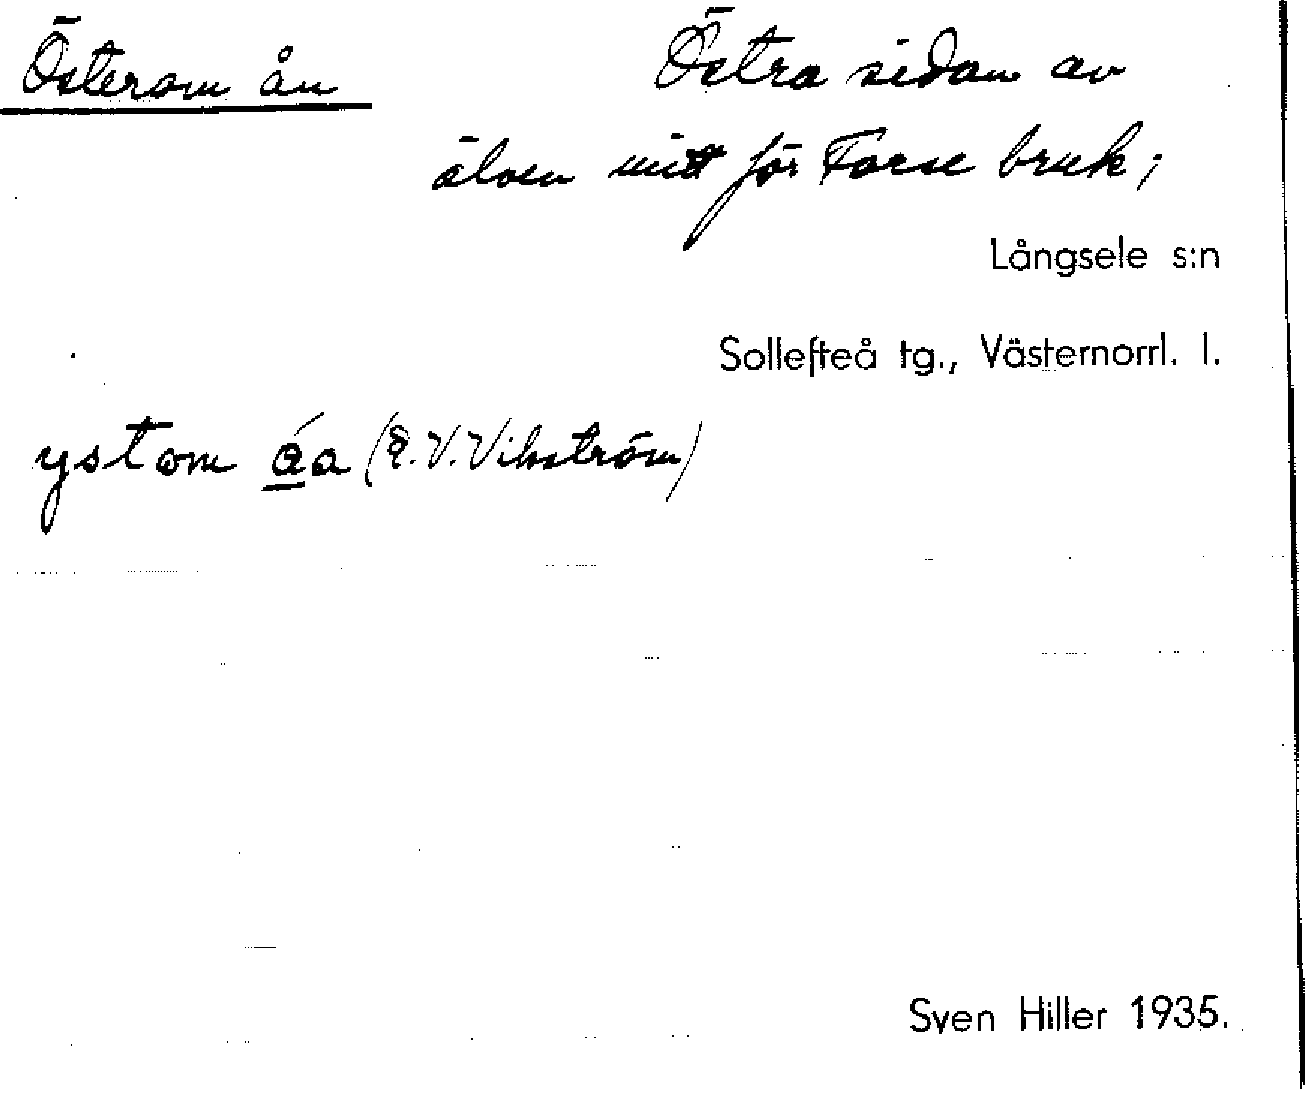 Österom ån Östra sidan av
älven mitt för Forse bruk;
Långsele s:n
Sollefteå tg., Västernorrl. l.
ystom áa (E.V.Vikström)
Sven Hiller 1935.